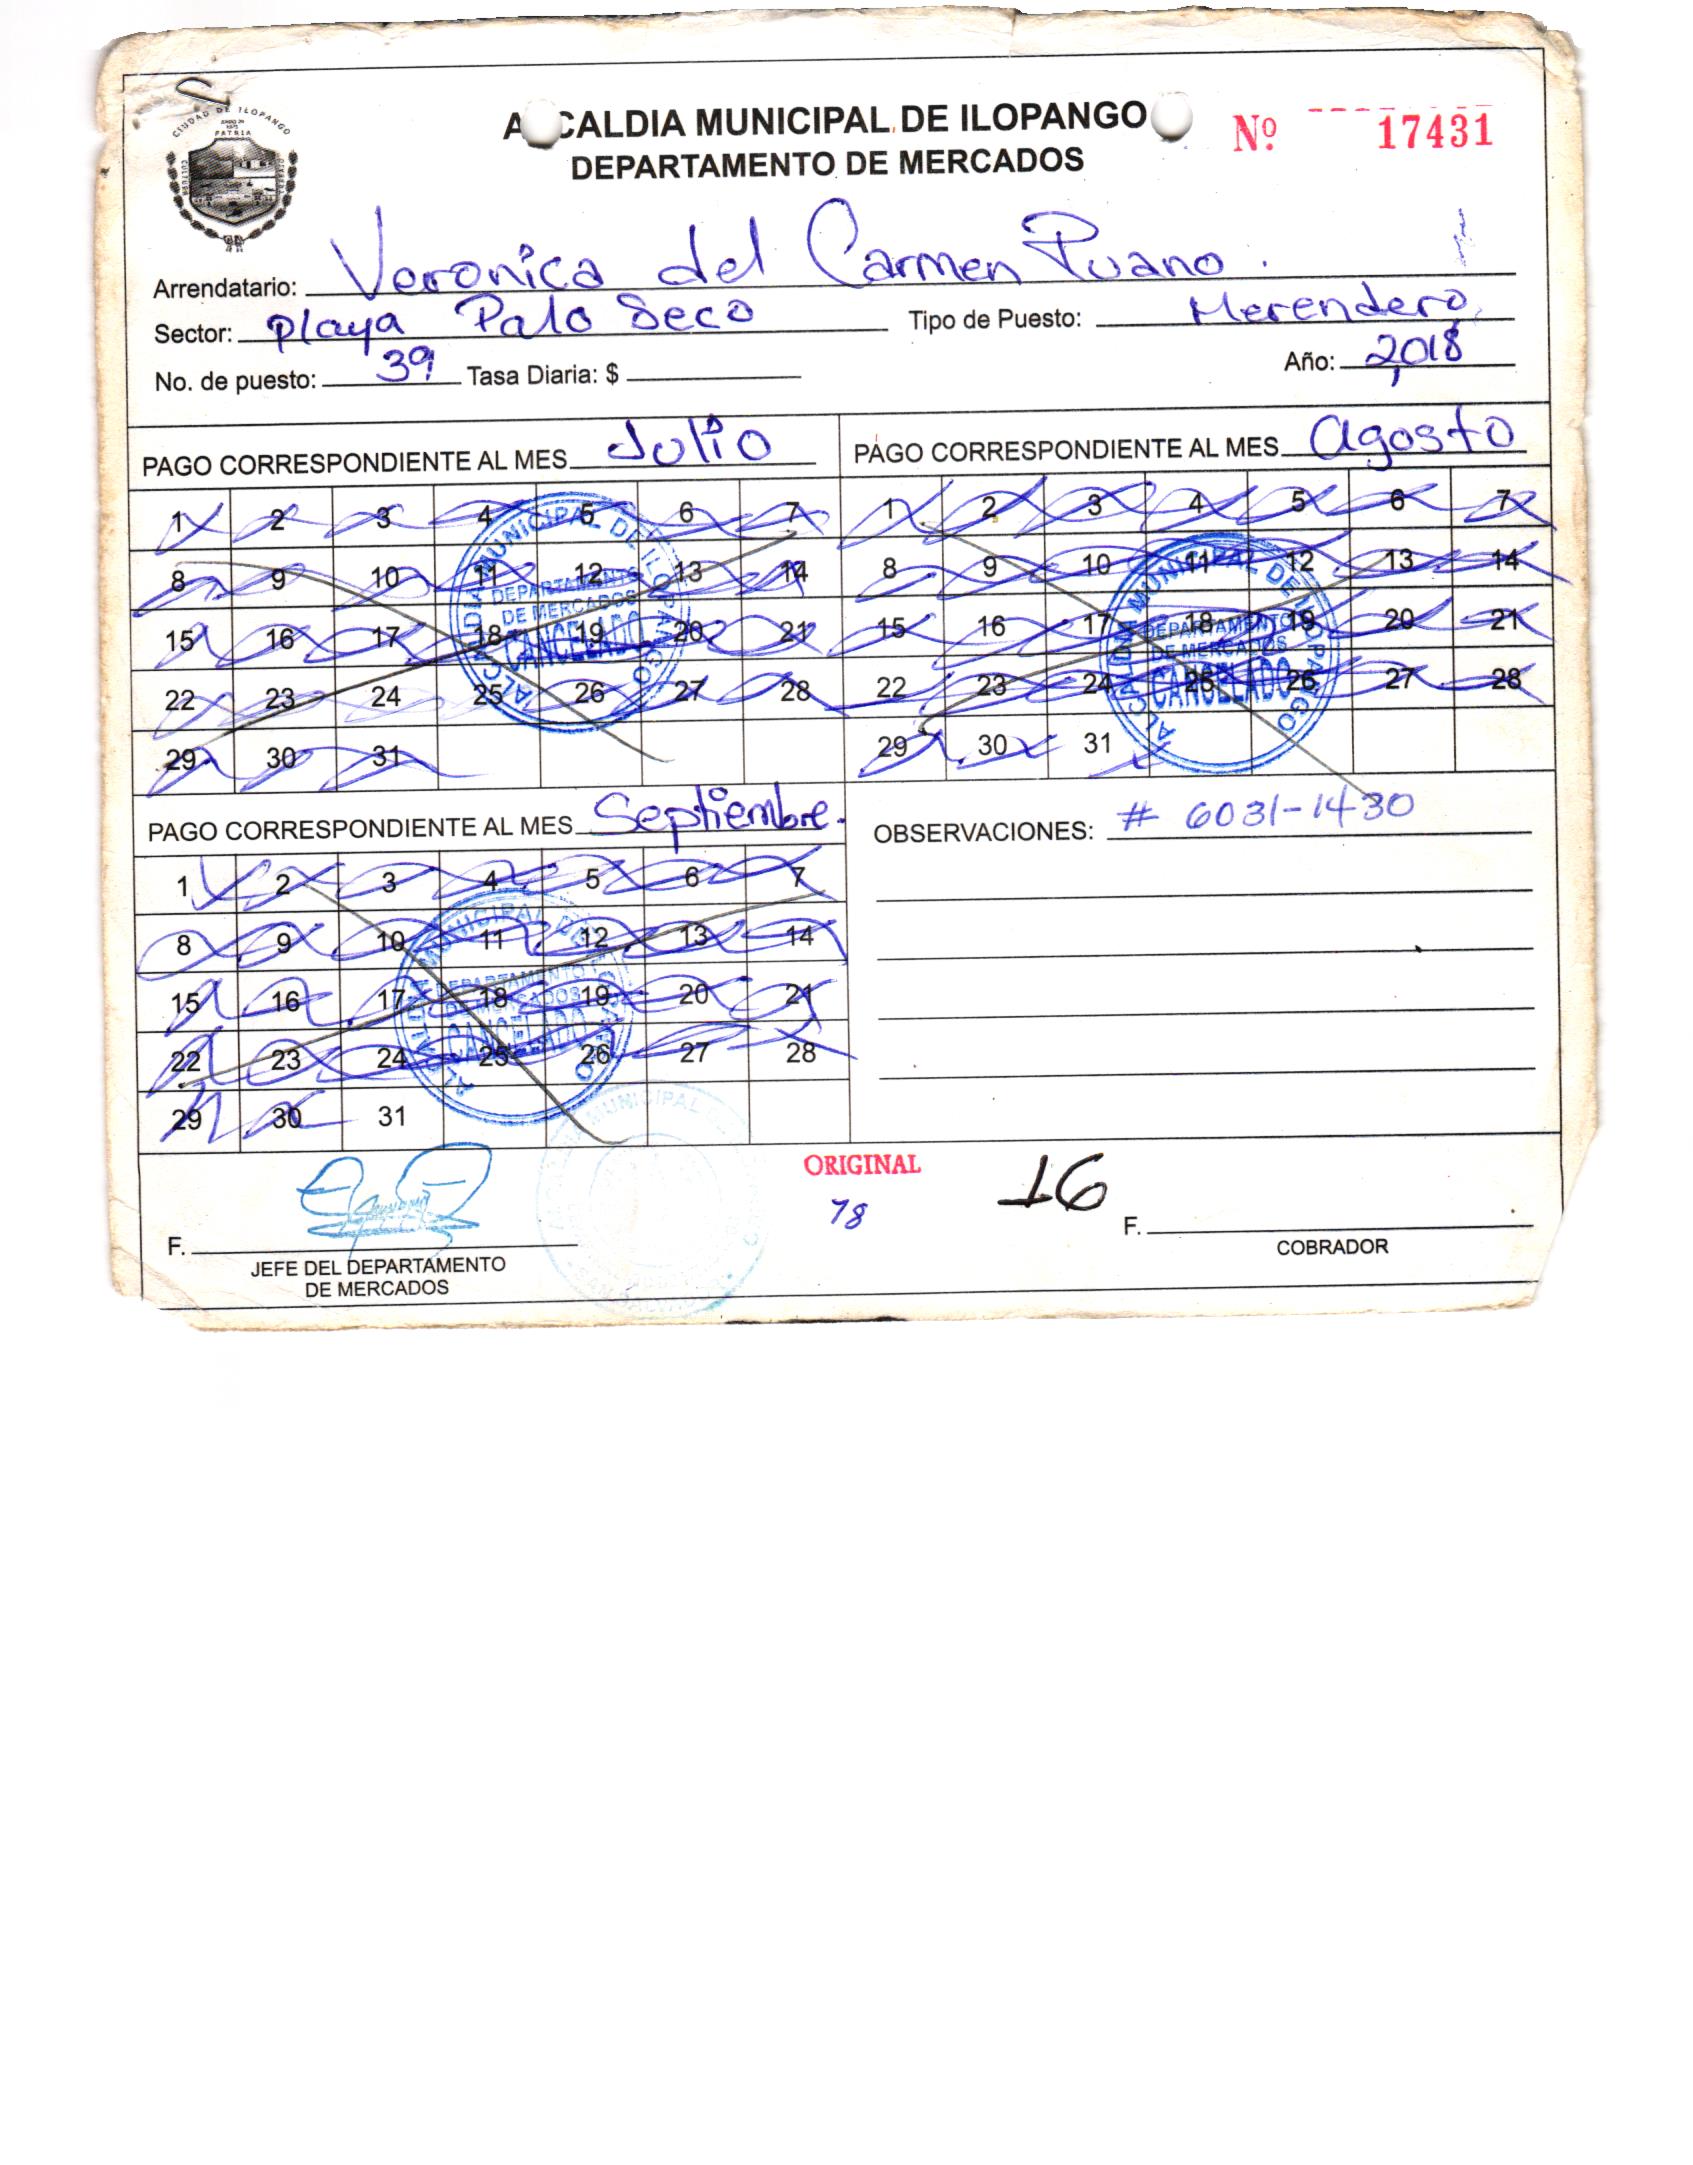 CIUDAD DE ILOPANGO
PATRIA
ALCALDIA MUNICIPAL DE ILOPANGO
Nº 17431
DEPARTAMENTO DE MERCADOS
Arrendatario: Veronica del Carmen Puano.
Sector: Playa Palo Seco Tipo de Puesto: Merendero
No. de puesto: 39 Tasa Diaria: $ Año: 2,018
PAGO CORRESPONDIENTE AL MES Julio
1 2 3 4 5 6 7
8 9 10 11 12 13 14
15 16 17 18 19 20 21
22 23 24 25 26 27 28
29 30 31
ALCALDIA MUNICIPAL DE ILOPANGO
DEPARTAMENTO
DE MERCADOS
CANCELADO
PAGO CORRESPONDIENTE AL MES agosto
1 2 3 4 5 6 7
8 9 10 11 12 13 14
15 16 17 18 19 20 21
22 23 24 25 26 27 28
29 30 31
ALCALDIA MUNICIPAL DE ILOPANGO
DEPARTAMENTO
DE MERCADOS
CANCELADO
PAGO CORRESPONDIENTE AL MES Septiembre.
1 2 3 4 5 6 7
8 9 10 11 12 13 14
15 16 17 18 19 20 21
22 23 24 25 26 27 28
29 30 31
ALCALDIA MUNICIPAL DE ILOPANGO
DEPARTAMENTO
DE MERCADOS
CANCELADO
OBSERVACIONES: # 6031-1430
ORIGINAL
78
16
F.
JEFE DEL DEPARTAMENTO
DE MERCADOS
MUNICIPAL
F.
COBRADOR